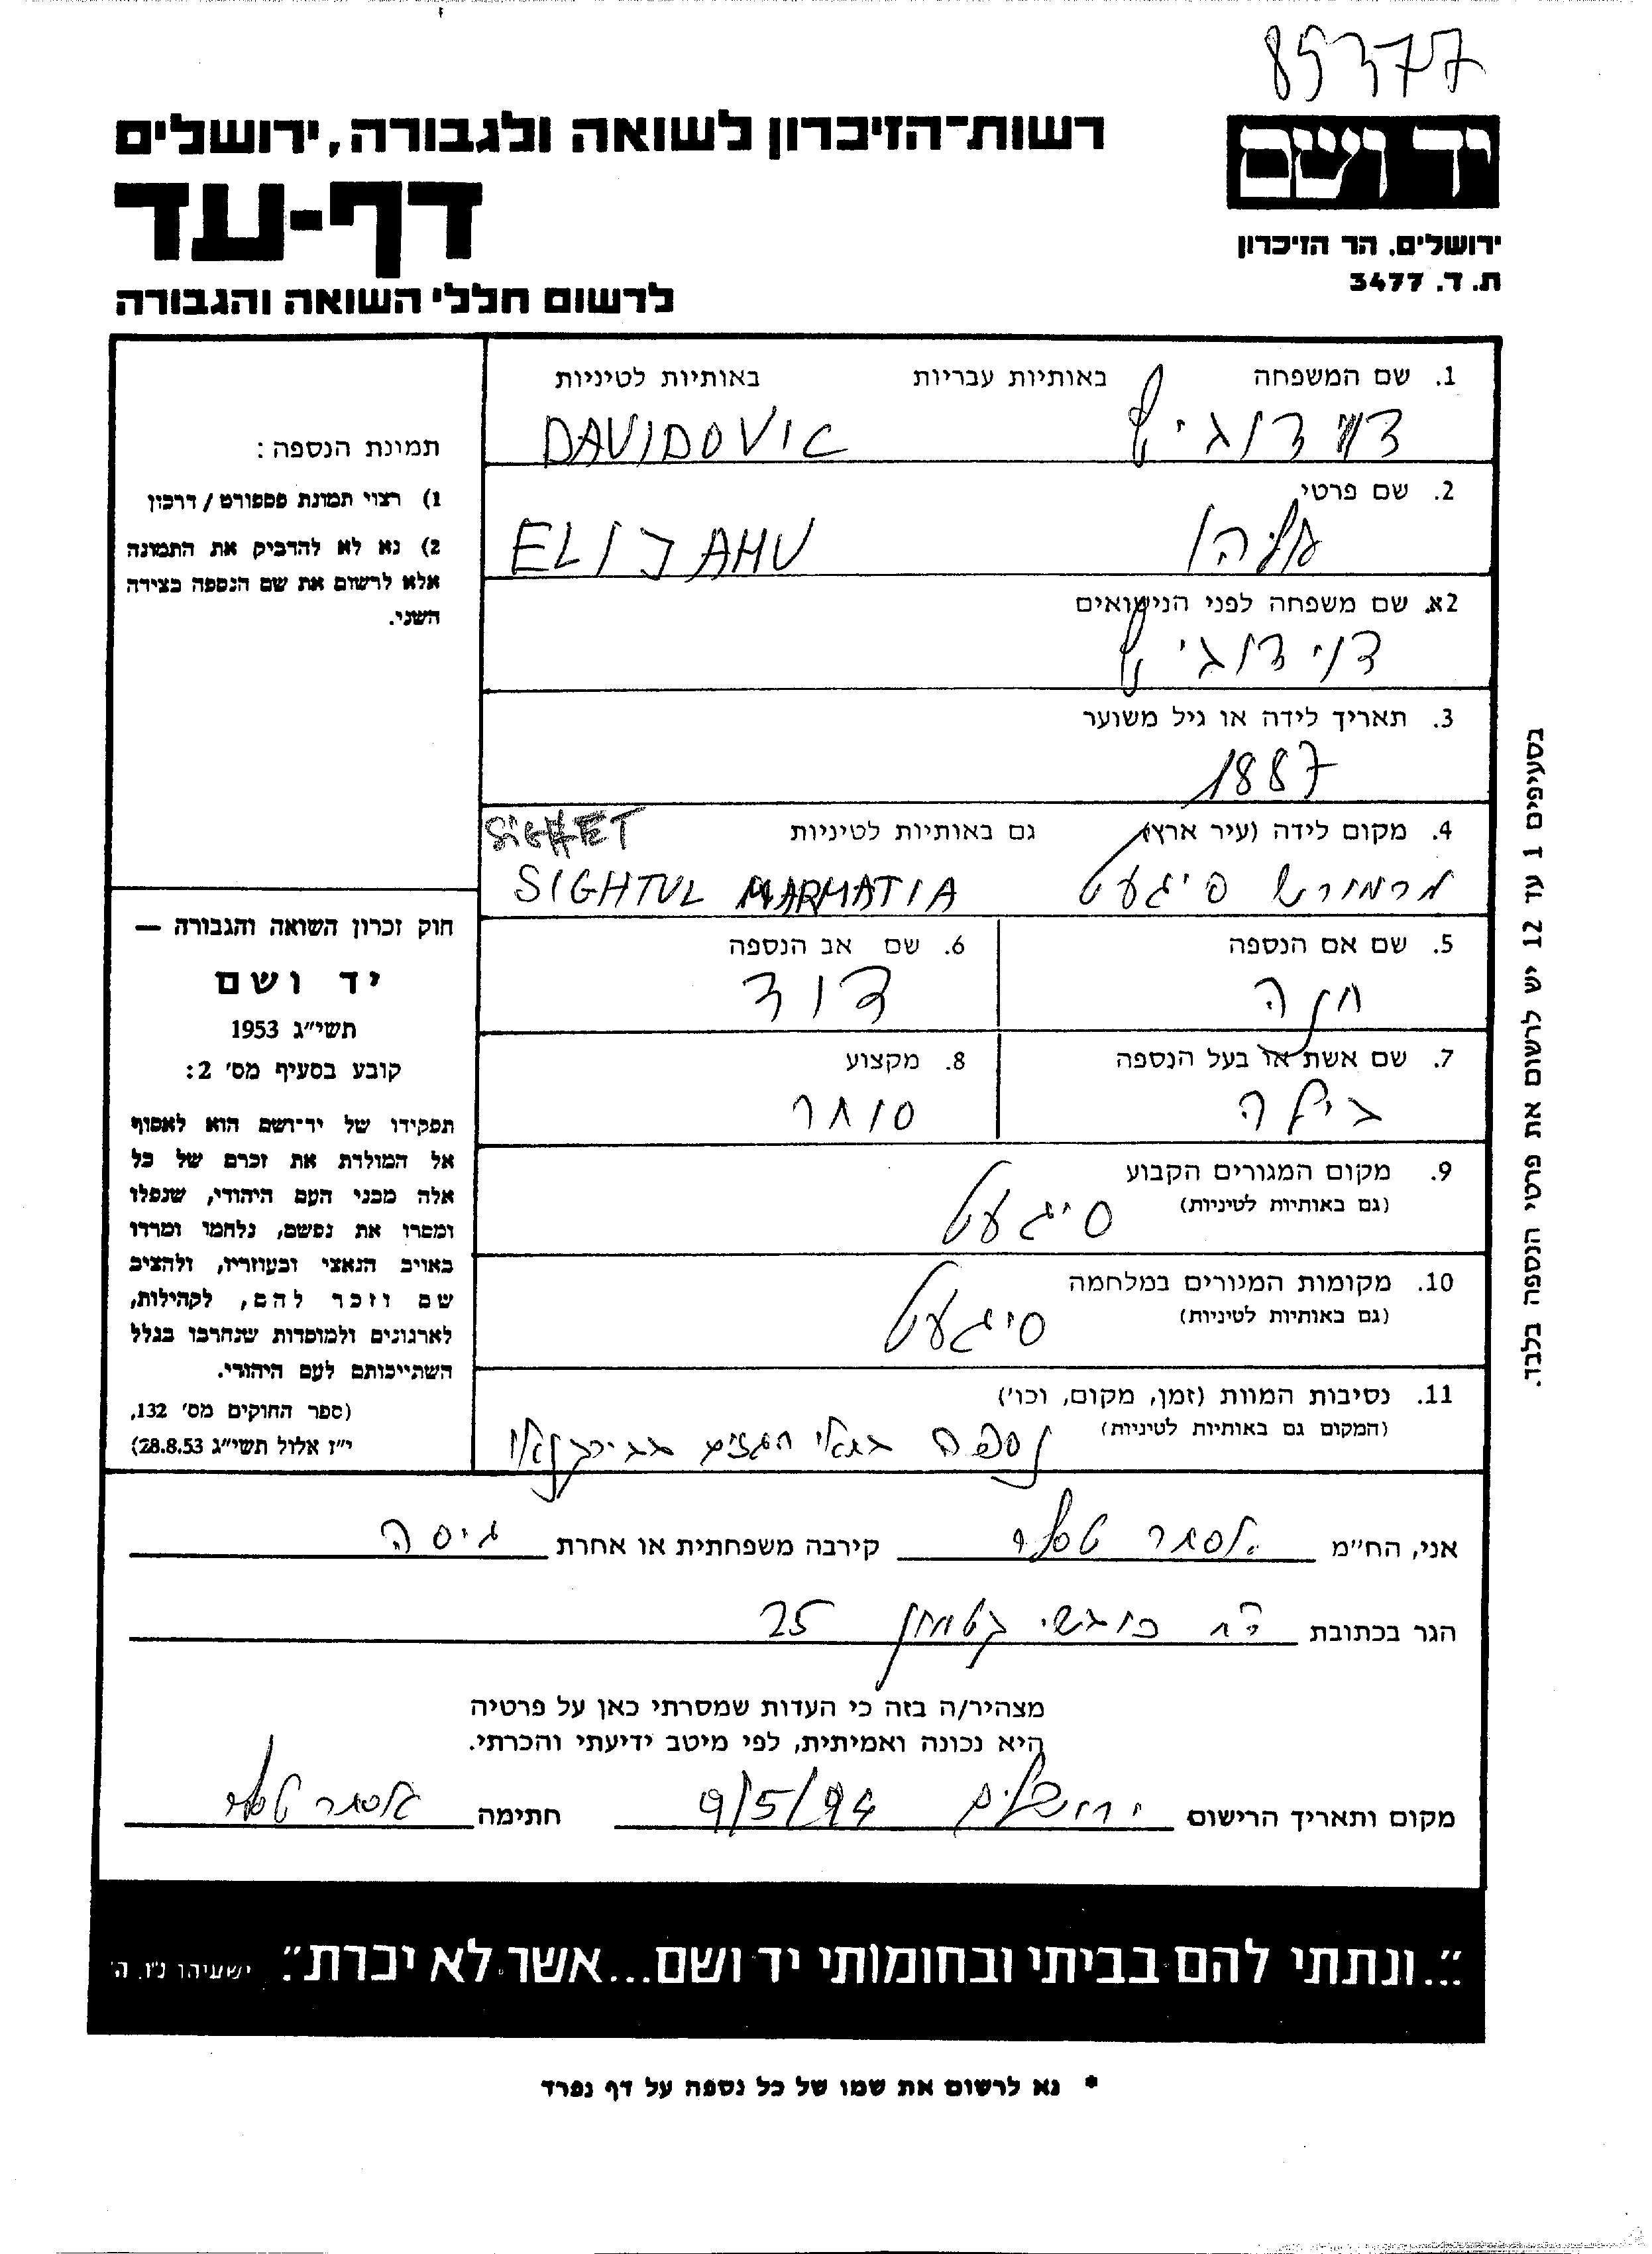 89377
יד ושם
ירושלים. הר הזיכרון
ת. ד. 3477
רשות-הזיכרון לשואה ולגבורה, ירושלים
דף-עד
לרשום חללי השואה והגבורה
1. שם המשפחה באותיות עבריות באותיות לטיניות
דוידוביץ DAVIDOVIC
2. שם פרטי
אליהו ELIJAHU
2א. שם משפחה לפני הנישואים
דוידוביץ
3. תאריך לידה או גיל משוער
1887
4. מקום לידה (עיר ארץ) גם באותיות לטיניות SIGHET
מרמורש סיגעט SIGHTUL MARMATIA
5. שם אם הנספה
חנה
6. שם אב הנספה
דוד
7. שם אשת או בעל הנספה
בילה
8. מקצוע
סוחר
9. מקום המגורים הקבוע
(גם באותיות לטיניות)
סיגעט
10. מקומות המגורים במלחמה
(גם באותיות לטיניות)
סיגעט
11. נסיבות המוות (זמן, מקום, וכו')
(המקום גם באותיות לטיניות)
נספה בתאי הגזים בבירקנאו
תמונת הנספה:
1) רצוי תמונת פספורט / דרכון
2) נא לא להדביק את התמונה
אלא לרשום את שם הנספה בצידה
השני.
חוק זכרון השואה והגבורה —
יד ושם
תשי"ג 1953
קובע בסעיף מס' 2:
תפקידו של יד-ושם הוא לאסוף
אל המולדת את זכרם של כל
אלה מבני העם היהודי, שנפלו
ומסרו את נפשם, נלחמו ומרדו
באויב הנאצי ובעוזריו, ולהציב
שם וזכר להם, לקהילות,
לארגונים ולמוסדות שנחרבו בגלל
השתייכותם לעם היהודי.
(ספר החוקים מס' 132,
י"ז אלול תשי"ג 28.8.53)
בסעיפים 1 עד 12 יש לרשום את פרטי הנספה בלבד.
אני, הח"מ אסתר קירבה משפחתית או אחרת גיסה
הגר בכתובת רח כובשי קטמון 25
מצהיר/ה בזה כי העדות שמסרתי כאן על פרטיה
היא נכונה ואמיתית, לפי מיטב ידיעתי והכרתי.
מקום ותאריך הרישום ירושלים 9/5/94 חתימה אסתר
"...ונתתי להם בביתי ובחומותי יד ושם...אשר לא יכרת". ישעיהו נ"ו, ה'
* נא לרשום את שמו של כל נספה על דף נפרד